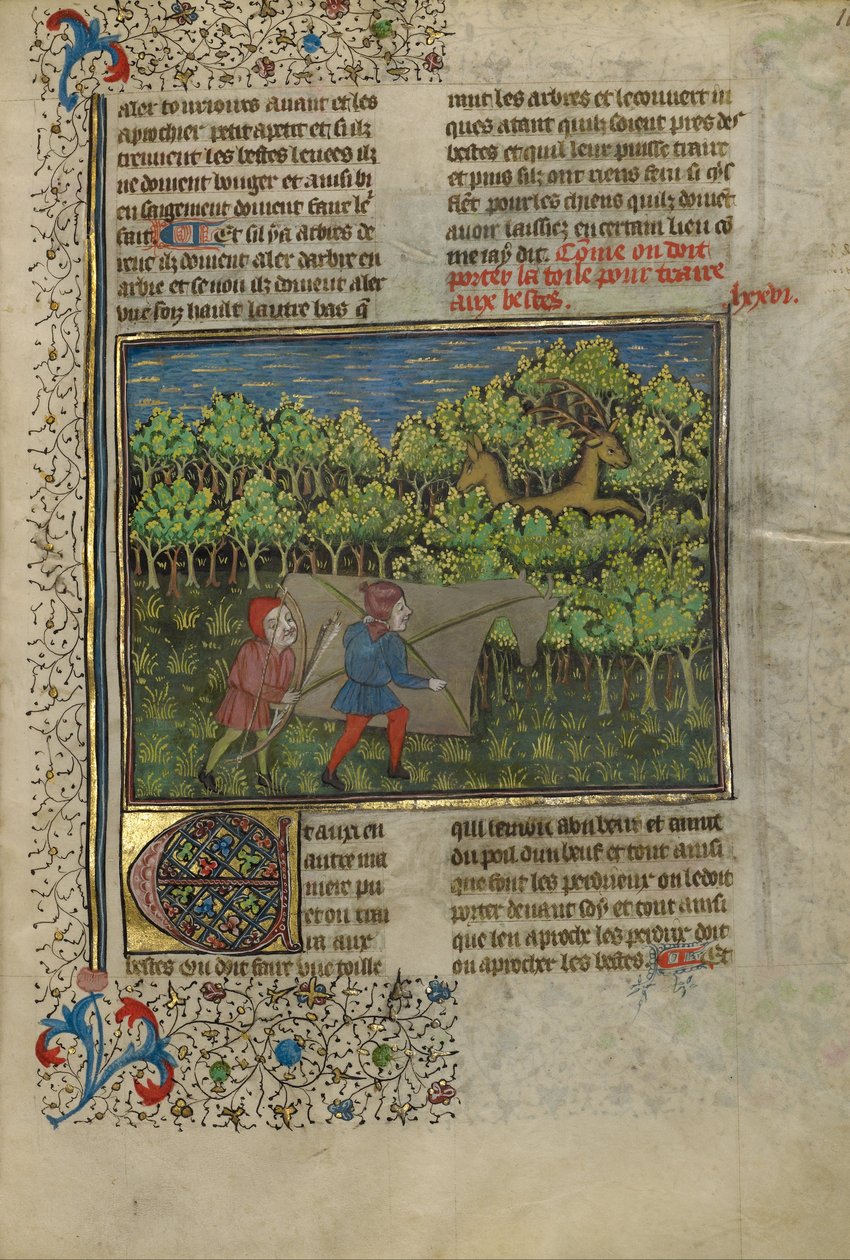 aler tousiours auant et les
aprochier petit a petit et silz
treuuent les bestes leuees ilz
ne doiuent bouger et ainsi bi
en saigement doiuent faire le
fait Et sil y a arbres de
ilz doiuent aler darbre en
arbre et se non ilz doiuent aler
vne foiz hault lautre bas
les arbres et le couuert iu
ques atant quilz soient pres des
bestes et quil leur puisse traire
et puis silz ont riens feru si
pour les chiens quilz doiuent
auoir laissiez en certain lieu co
me iay dit. Cōme on doit
porter la toile pour traire
aux bestes. .lxxvi.
E
t aussi en
autre ma
niere pu
et on trai
re aux
bestes On doit faire vne toille
qui le mon a vn beuf et
du poil dun beuf et tout ainsi
que font les perdrieux on le doit
porter deuant soy et tout ainsi
que len aproche les perdrix doit
on aprochier les bestes Et